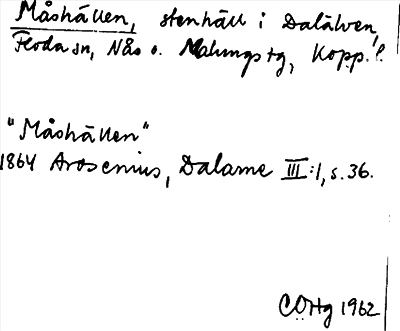 Måshällen, stenhäll i Dalälven,
Floda sn, Nås o. Malungs tg, Kopp. l.
"Måshällen"
1864 Arosenius, Dalarne III:1, s. 36.
CÖHg 1962